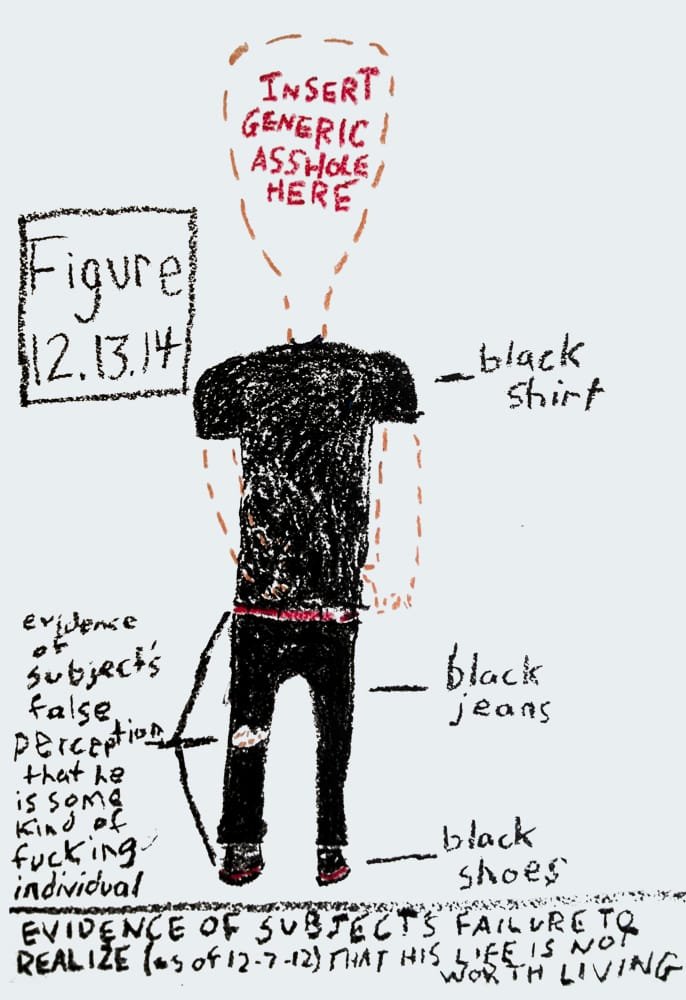 INSERT
GENERIC
ASSHOLE
HERE
Figure
12.13.14
black
shirt
evidence
of
subject's
false
perception
that he
is some
kind of
fucking
individual
black
jeans
black
shoes
EVIDENCE OF SUBJECT'S FAILURE TO
REALIZE (as of 12-7-12) THAT HIS LIFE IS NOT
WORTH LIVING